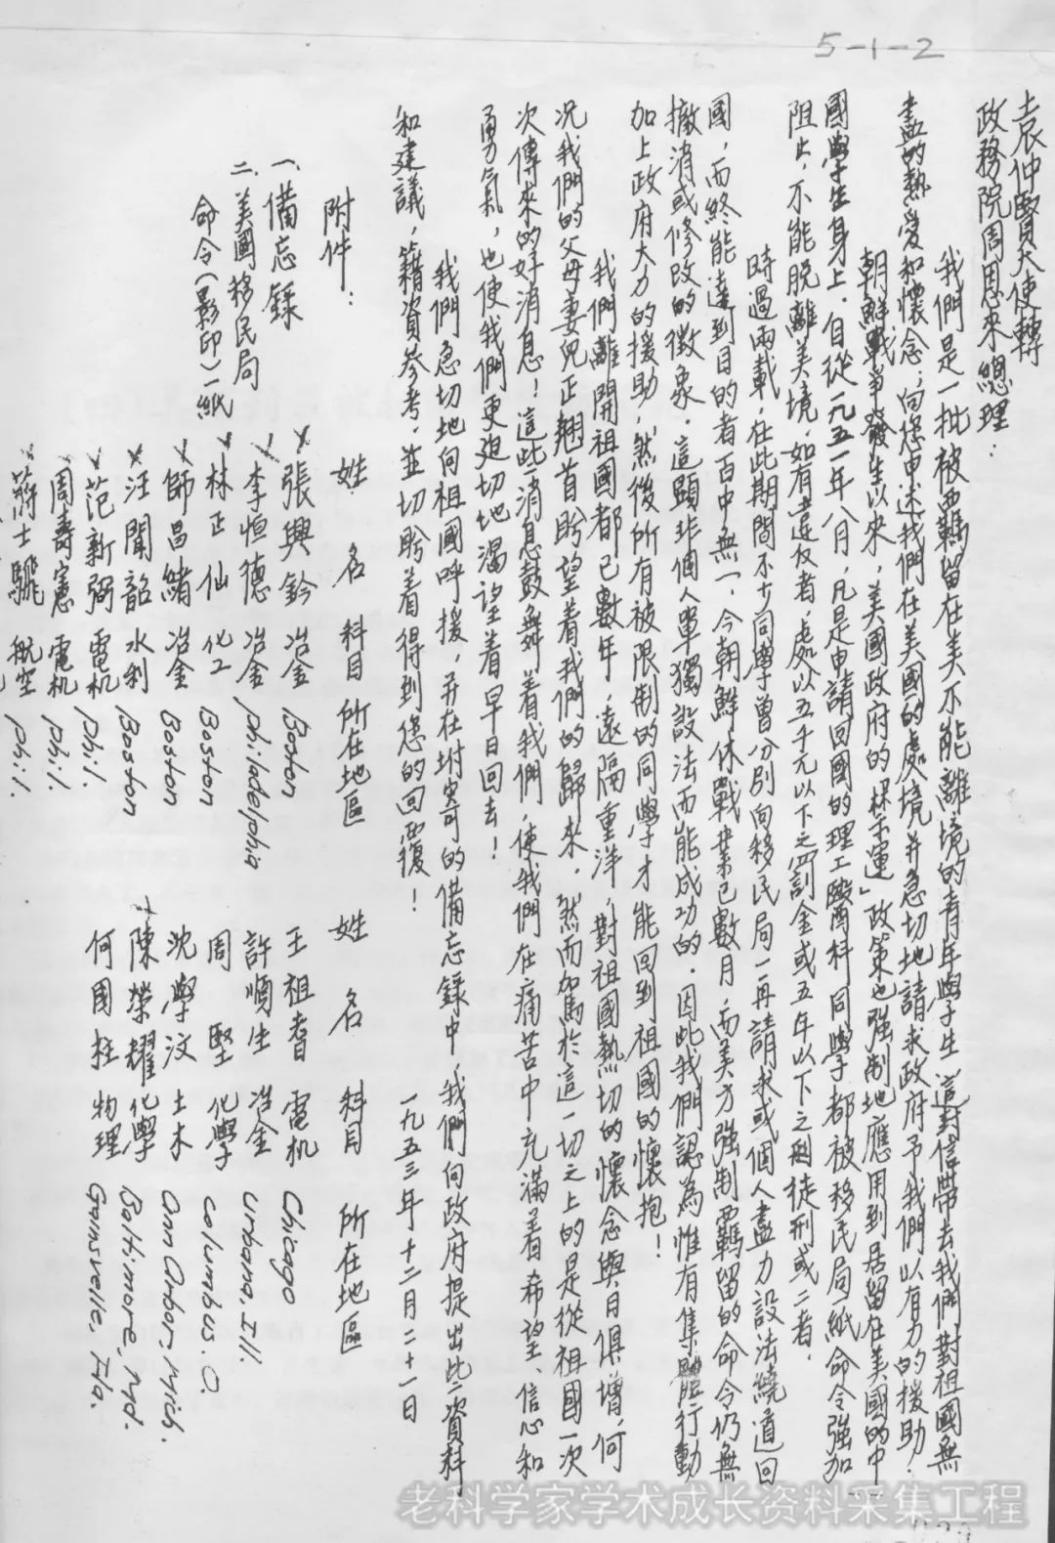 5-1-2
袁仲賢大使轉
政務院周恩來總理：
我們是一批被羈留在美不能離境的青年學生，這封信帶去我們對祖國無
盡的熱愛和懷念；向您申述我們在美國的處境并急切地請求政府予我們以有力的援助．
朝鮮戰爭發生以來，美國政府的「禁運」政策也強制地應用到居留在美國的中
國學生身上．自從一九五一年八月，凡是申請回國的理工醫科同學都被移民局一紙命令強加
阻止，不能脫離美境，如有違反者，處以五千元以下之罰金或五年以下之徒刑或二者．
時過兩載，在此期間不少同學曾分別向移民局一再請求或個人盡力設法繞道回
國，而終能達到目的者百中無一，今朝鮮休戰業已數月，而美方強制羈留的命令仍無
撤消或修改的徵象．這顯非個人單獨設法而能成功的．因此我們認為惟有集體行動
加上政府大力的援助，然後所有被限制的同學才能回到祖國的懷抱！
我們離開祖國都已數年，遠隔重洋，對祖國熱切的懷念與日俱增，何
況我們的父母妻兒正翹首盼望着我們的歸來．然而加於這一切之上的是從祖國一次
次傳來的好消息！這些消息鼓舞着我們，使我們在痛苦中充滿着希望、信心和
勇氣，也使我們更迫切地渴望着早日回去！
我們急切地向祖國呼援，并在附寄的備忘錄中，我們向政府提出此二資料
和建議，籍資參考，並切盼着得到您的回覆！
一九五三年十二月二十一日
附件：
一、備忘錄
二、美國移民局
命令（影印）一紙
姓 名 科目 所在地區 姓 名 科目 所在地區
張興鈐 冶金 Boston 王祖耆 電机 Chicago
李恒德 冶金 philadelphia 許順生 冶金 Urbana, Ill.
林正仙 化工 Boston 周 堅 化學 Columbus. O.
師昌緒 冶金 Boston 沈學汶 土木 Ann Arbor, Mich.
汪聞韶 水利 Boston 陳榮耀 化學 Baltimore, Md.
范新弼 電机 Phil. 何國柱 物理 Gainsvelle, Fla.
周壽憲 電机 Phil.
蔣士騛 航空 Phil.
老科学家学术成长资料采集工程